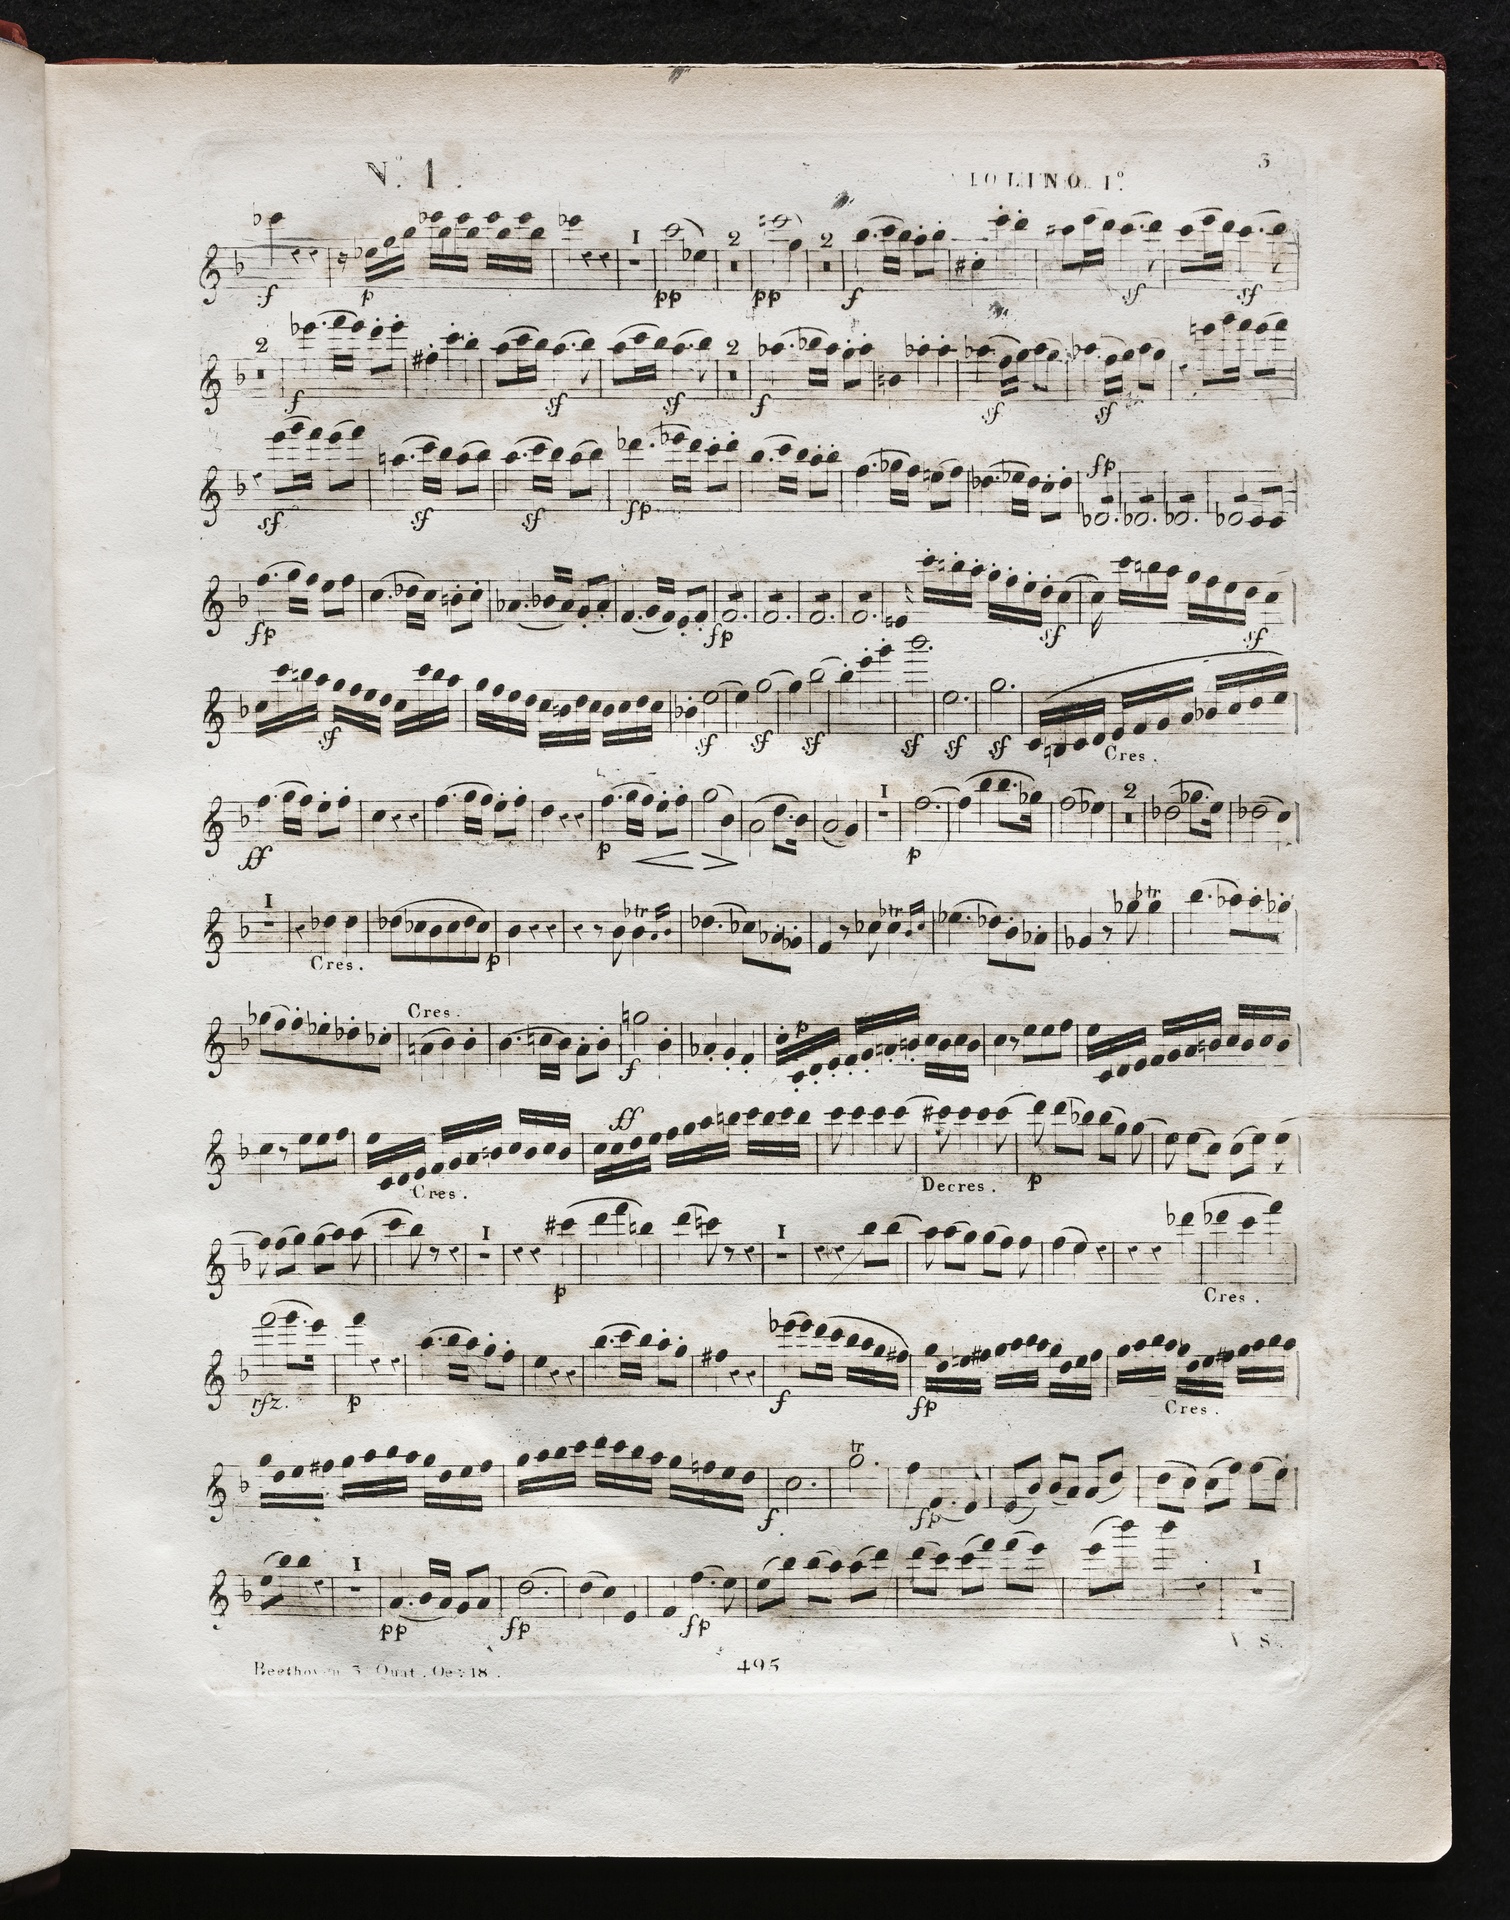 3
Nº. 1.
IOLINO. Iº.
I 2 2
f p pp pp f sf sf
2 2
f sf sf f sf sf
fp
sf sf sf fp
fp fp sf sf
sf sf sf sf sf sf sf
Cres.
I 2
ff p p
I tr tr tr
Cres. p
Cres.
f p
ff
Cres. Decres. p
I I
p Cres.
rfz. p f fp Cres.
tr
f fp
I I
pp fp fp
V. S.
Beethoven 3 Quat. Oe: 18.
495